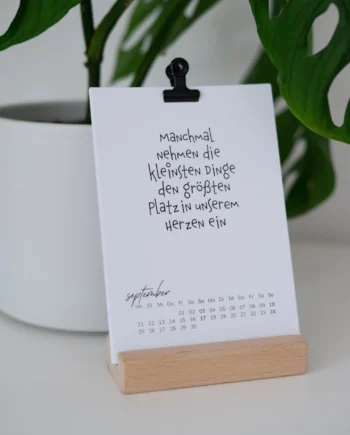 Manchmal
nehmen die
kleinsten Dinge
den größten
Platz in unserem
Herzen ein
september
Mo Di Mi Do Fr Sa So Mo Di Mi Do Fr Sa So
01 02 03 04 05 06 07 08 09 10
11 12 13 14 15 16 17 18 19 20 21 22 23 24
25 26 27 28 29 30